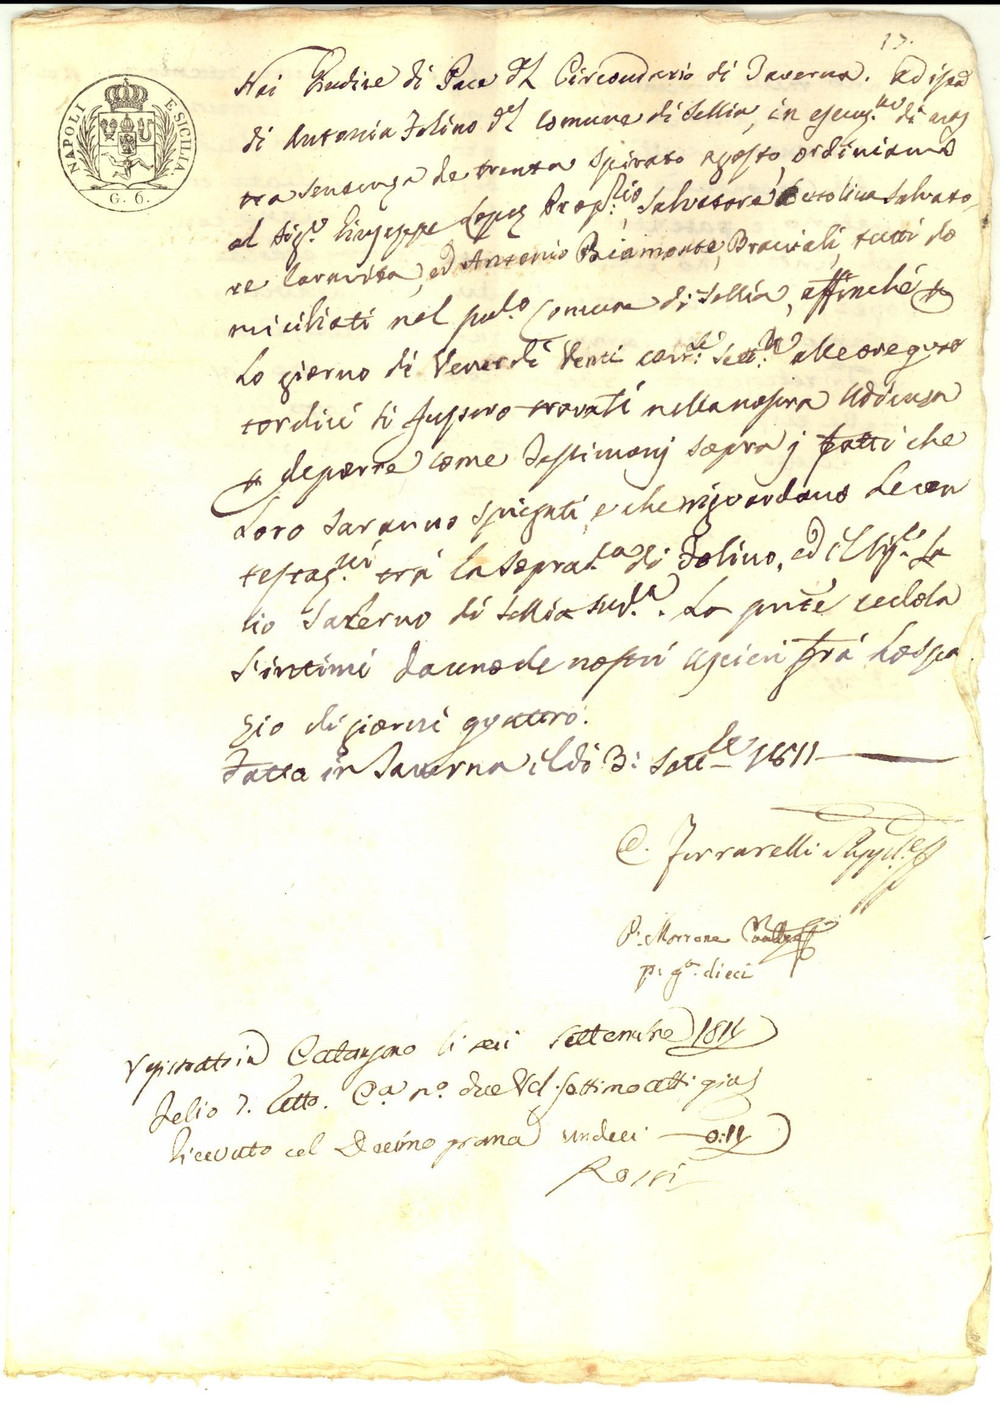 17.
NAPOLI E SICILIA
G. 6.
Noi Giudice di Pace del Circondario di Taverna. Ad ista
di Antonia Folino del Comune di Sellia, in esecuz.ne di nos
tra sentenza de trenta spirato agosto, ordiniamo
al Sig.r Giuseppe Lopez Prop.rio, Salvatore Cetolina Salvato,
re Carnuta, ed Antonio Biamonte, Bracciali, tutti do
miciliati nel pred.o Comune di Sellia, affinchè
lo giorno di Venerdì Venti corr.te Sett.re alle ore quat
tordici si fussero trovati nella nostra Udienza
a deporre come Testimonj sopra j fatti che
loro saranno spiegati, e che riguardano le con
testaz.ni trà la soprad.ta di Folino, ed il Sig.r La
lio Salerno di Sellia sud.a. La pnte cedola
s'intimi da uno de nostri uscieri frà lo spa
zio di giorni quattro.
Fatta in Taverna il dì 3: Sett.re 1811
C. Ferrarelli Suppl.e
P. Morrone
p. g.a dieci
Registrato in Catanzaro li sei Settembre 1811
Folio 7. retto. Ca. n.o due Vol. settimo atti giud
Ricevuto col Decimo grana undeci 0:11
Rossi